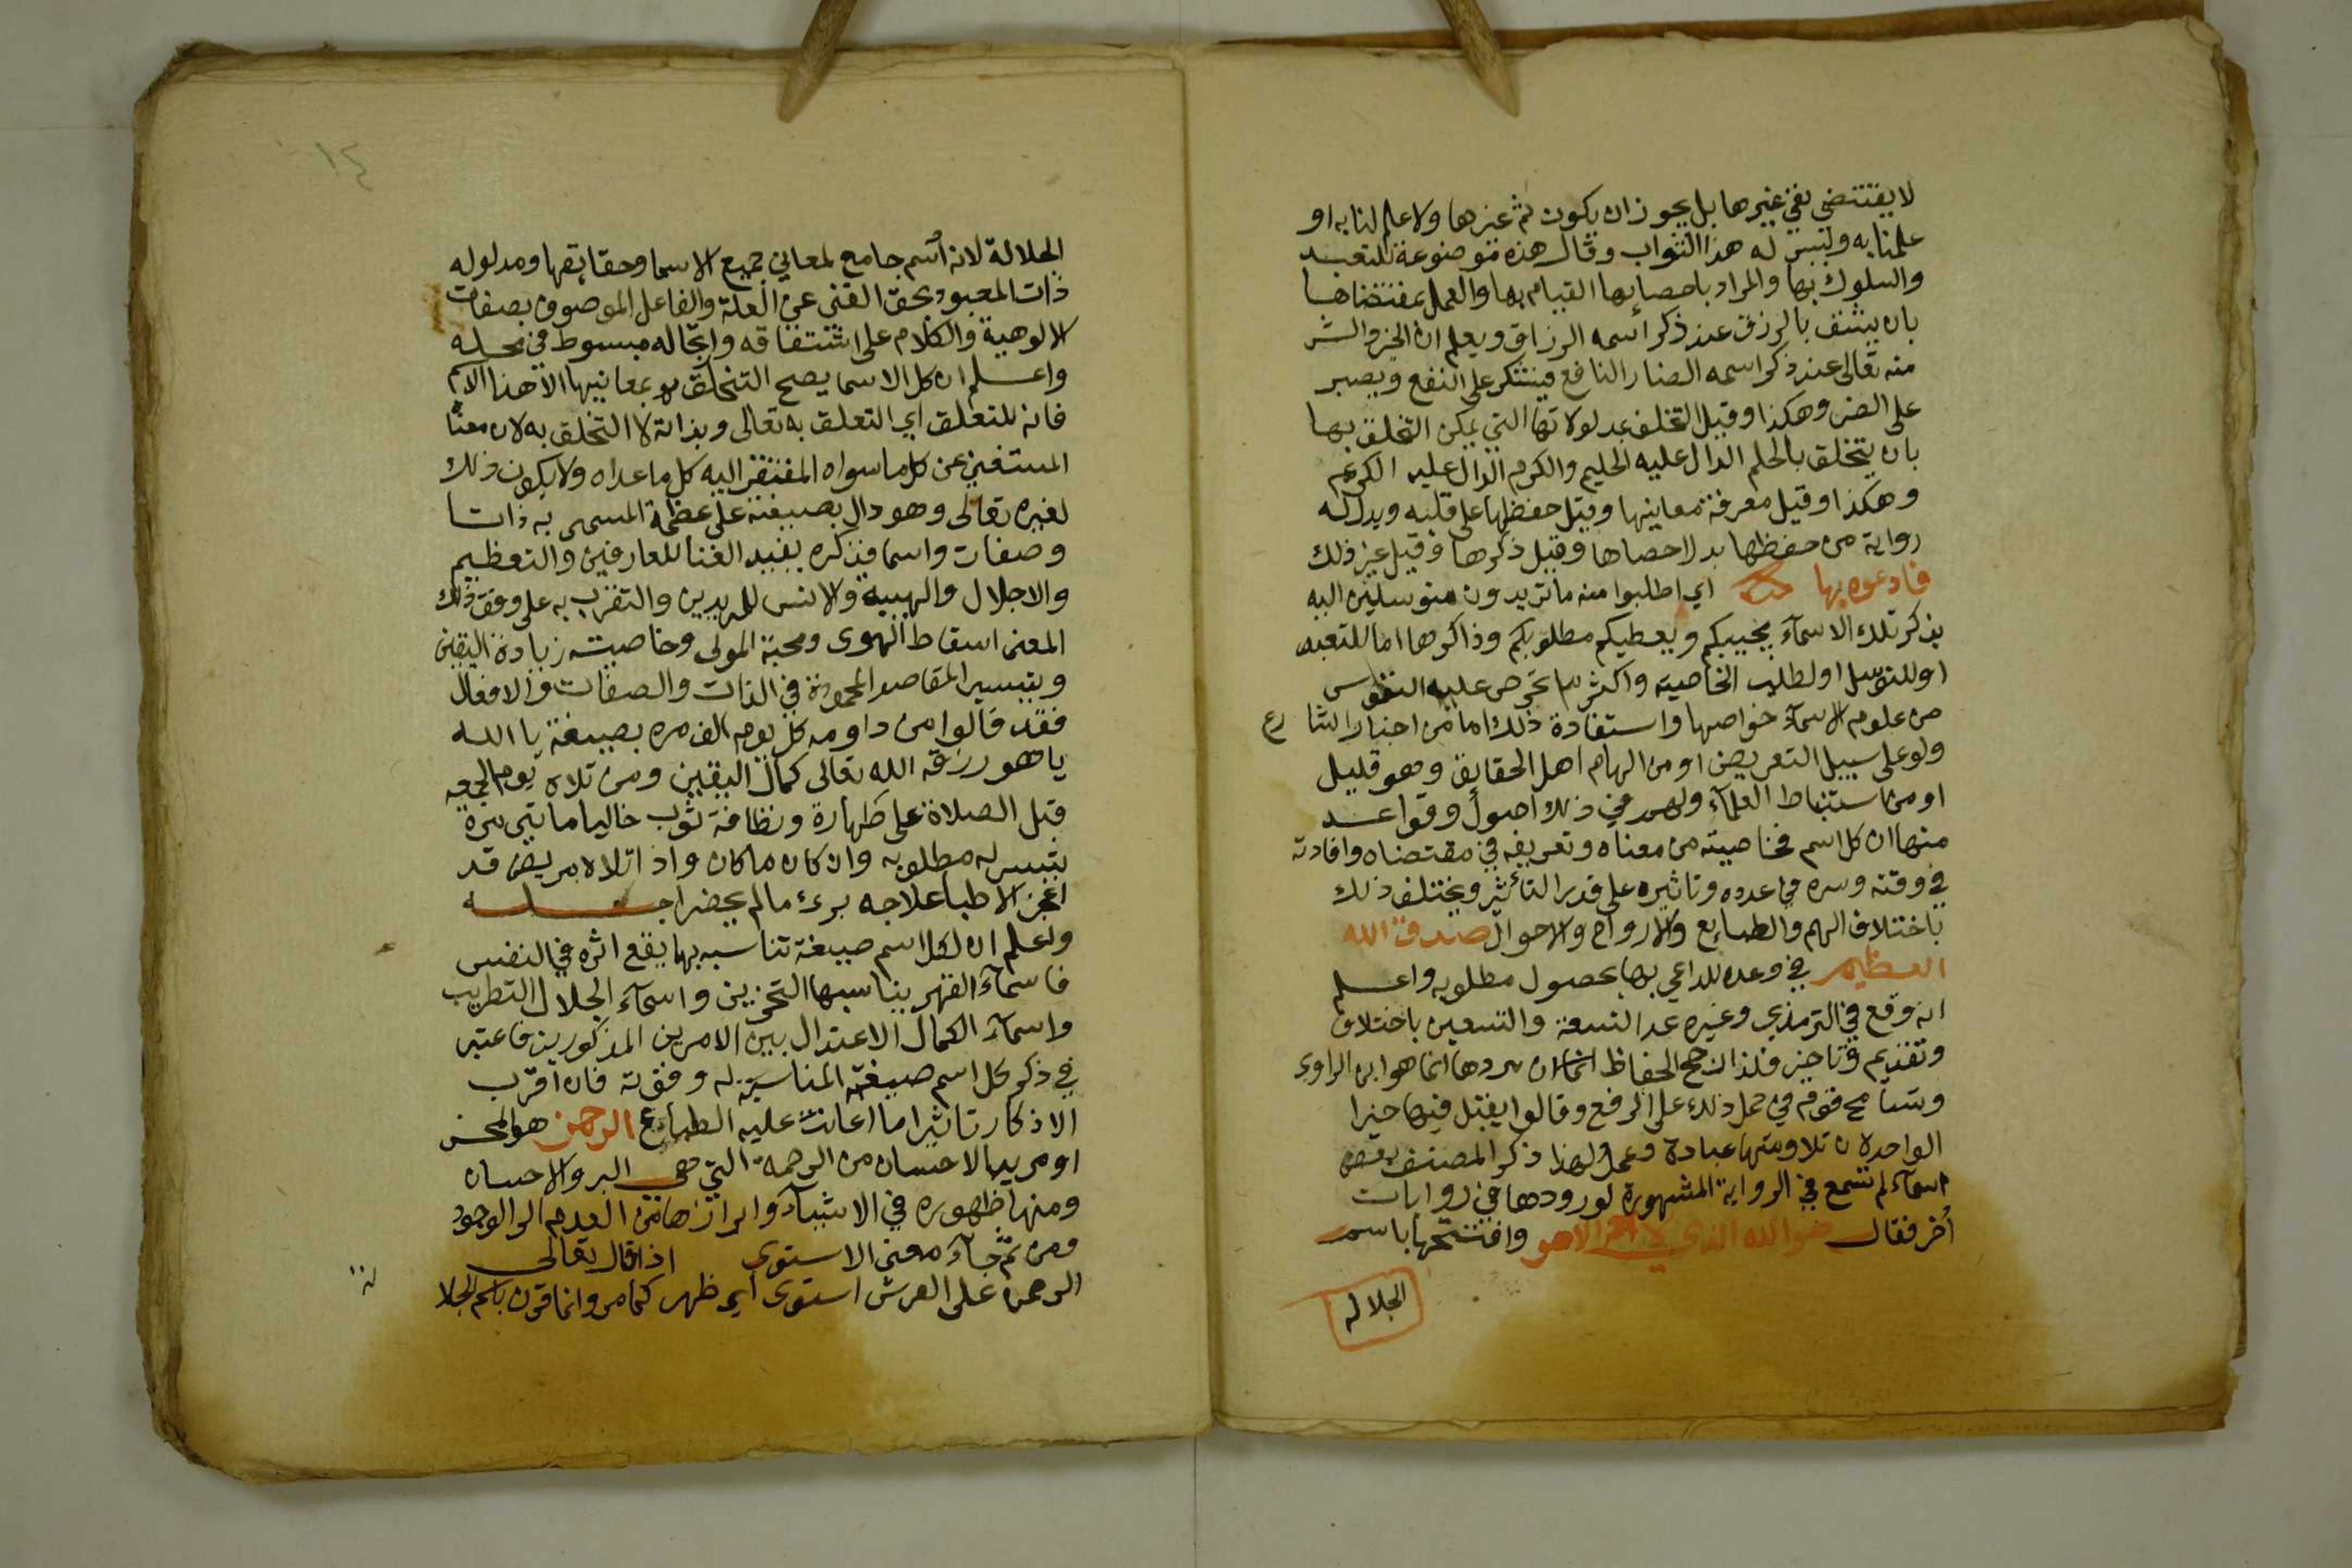 لا يقتضي نفي غيرها بل يجوز ان يكون ثم غيرها ولا علم لنا به او
علمنا به وليس له هذا الثواب وقال هذه موضوعة للتعبد
والسلوك بها والمراد باحصائها القيام بها والعمل بمقتضاها
بان يثق بالرزق عند ذكر اسمه الرزاق ويعلم ان الخير والشر
منه تعالى عند ذكر اسمه الضار النافع فيشكر على النفع ويصبر
على الضر وهكذا وقيل التخلق بمدلولاتها التي يمكن التخلق بها
بان يتخلق بالحلم الدال عليه الحليم والكرم الدال عليه الكريم
وهكذا وقيل معرفة معانيها وقيل حفظها على قلبه ويدل له
رواية من حفظها بدلا احصاها وقيل ذكرها وقيل غير ذلك
فادعوه بها اي اطلبوا منه ما تريدون متوسلين اليه
بذكر تلك الاسمآء يجيبكم ويعطيكم مطلوبكم وذاكرها اما للتعبد
او للتوسل او لطلب الخاصية واكثر ما تحرص عليه النفوس
من علوم الاسمآء خواصها واستفادة ذلك اما من اخبار الشارع
ولو على سبيل التعريض او من الهام اهل الحقايق وهو قليل
او من استنباط العلمآء ولهم في ذلك اصول وقواعد
منها ان كل اسم فخاصيته من معناه وتعريفه في مقتضاه وافادته
في وقته وسره في عدده وتاثيره على قدر التأثير ويختلف ذلك
باختلاف الهم والطبايع والارواح والاحوال صدق الله
العظيم في وعده للداعي بها بحصول مطلوبه واعلم
انه وقع في الترمذي وغيره عد التسعة والتسعين باختلاف
وتقديم وتاخير فلذا رجح الحفاظ ان سردها انما هو من الراوي
وتسامح قوم في حمل ذلك على الرفع وقالوا يقبل فيها خبر
الواحد لان تلاوتها عبادة وعمل ولهذا ذكر المصنف بعض
اسمآء لم تسمع في الرواية المشهورة لورودها في روايات
أخر فقال هو الله الذي لا اله الا هو وافتتحها باسم
الجلاله
١٤
الجلالة لانه اسم جامع لمعاني جميع الاسما وحقايقها ومدلوله
ذات المعبود بحق الغني عن العلة والفاعل الموصوف بصفات
الالوهية والكلام على اشتقاقه وارتجاله مبسوط في محله
واعلم ان كل الاسما يصح التخلق بمعانيها الا هذا الاسم
فانه للتعلق اي التعلق به تعالى وبذاته لا التخلق به لان معناه
المستغني عن كل ما سواه المفتقر اليه كل ما عداه ولا يكون ذلك
لغيره تعالى وهو دال بصيغته على عظمة المسمى به ذاتا
وصفات واسما فذكره يفيد الفنا للعارفين والتعظيم
والاجلال والهيبة والانس للمريدين والتقرب به على وفق ذلك
المعنى اسقاط الهوى ومحبة المولى وخاصيته زيادة اليقين
وتيسير المقاصد المحمودة في الذات والصفات والافعال
فقد قالوا من داومه كل يوم الف مره بصيغة يا الله
يا هو رزقه الله تعالى كمال اليقين ومن تلاه يوم الجمعه
قبل الصلاة على طهارة ونظافة ثوب خاليا مايتي مرة
يتيسر له مطلوبه وان كان ما كان واذا تلاه مريض قد
اعجز الاطبا علاجه برئ ما لم يحضر اجله
واعلم ان لكل اسم صيغة تناسبه بها يقع اثره في النفس
فاسمآء القهر يناسبها التحزين واسمآء الجلال التطريب
واسمآء الكمال الاعتدال بين الامرين المذكورين فاعتبر
في ذكر كل اسم صيغته المناسبة له وقوته فان اقرب
الاذكار تاثيرا ما اعانت عليه الطبايع الرحمن هو المحسن
او مريد الاحسان من الرحمة التي هي البر والاحسان
ومنها ظهوره في الاشيآء وابرازها من العدم الى الوجود
ومن ثم جآء معنى الاستوى اذا قال تعالى
الرحمن على العرش استوى اي ظهر كما مر وانما قرن باسم الجلا
لة